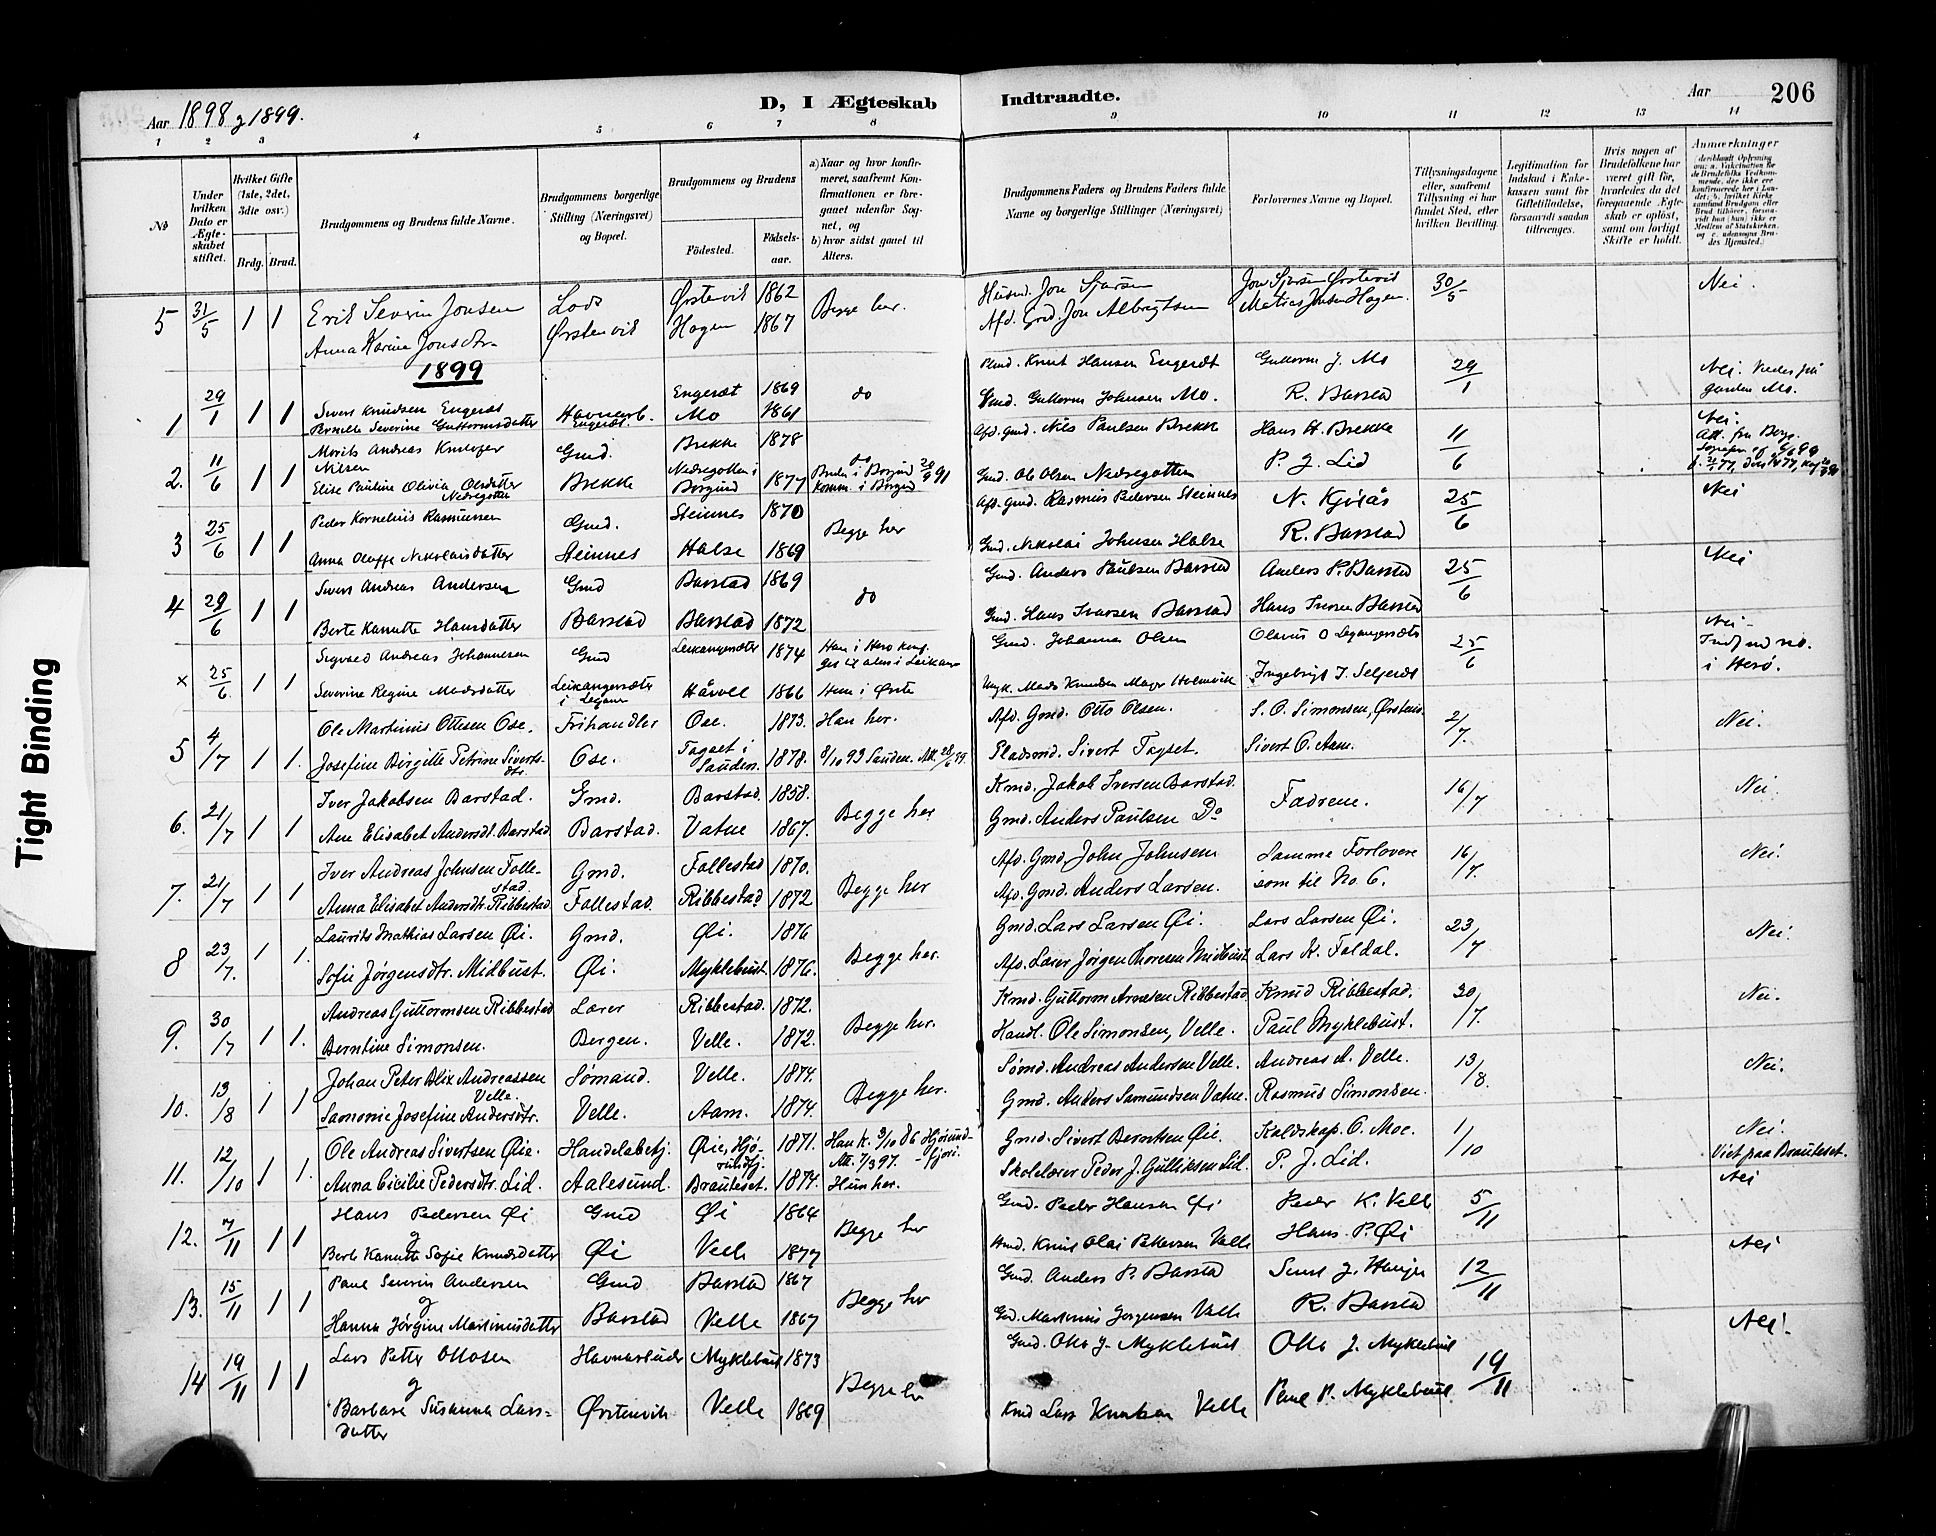 Aar 1898 og 1899.
D, I Ægteskab Indtraadte.
Aar 206
1 2 3 4 5 6 7 8 9 10 11 12 13 14
No
Under hvilken Dato er Ægteskabet stiftet.
Hvilket Gifte (1ste, 2det, 3die osv.)
Brdg. Brud.
Brudgommens og Brudens fulde Navne.
Brudgommens borgerlige Stilling (Næringsvei) og Bopæl.
Brudgommens og Brudens
Fødested. Fødselsaar.
a) Naar og hvor konfirmeret, saafremt Konfirmationen er foregaaet udenfor Sognet, og
b) hvor sidst gaaet til Alters.
Brudgommens Faders og Brudens Faders fulde Navne og borgerlige Stillinger (Næringsvei)
Forlovernes Navne og Bopæl.
Tillysningsdagene eller, saafremt Tillysning ei har fundet Sted, efter hvilken Bevilling.
Legitimation for Indskud i Enkekassen samt for Giftetilladelse, forsaavidt saadan tiltrænges.
Hvis nogen af Brudefolkene har været gift før, hvorledes da det foregaaende Ægteskab er opløst, samt om lovligt Skifte er holdt.
Anmærkninger
5 31/5 1 1 Erik Severin Jonsen Lods Ørstevik 1862 Begge her. Husmd. Jon Sjursen Jon Sjursen Ørstevik 30/5 Nei.
Anna Karine Jonsdtr. Ørstenvik Hagen 1867 Afd. Grd. Jon Albrigtsen Matias Jonsen Hagen.
1899
1 29/1 1 1 Sivert Knudsen Engeset Havnearb. Engeset 1869 do Knut Hansen Engeset Guttorm J. Mo 29/1 Nei. Vedes paa garden Mo.
Pernille Severine Guttormsdatter Engeset Mo 1861 Gmd. Guttorm Johnsen Mo. R. Barstad
2. 11/6 1 1 Morits Andreas Nilsen Gmd. Brekke 1878 do Afd. Gmd. Nils Paulsen Brekke Hans H. Brekke 11/6 Nei.
Elise Pauline Olivia Olsdatter Nedregotten Brekke Nedregotten i Borgund 1877 Gmd. Ole Olsen Nedregotten P. J. Lid
3 25/6 1 1 Peder Kornelius Rasmussen Gmd. Steinnes 1870 Begge her Afd. Gmd. Rasmus Pedersen Steinnes N. Kjisås 25/6 Nei
Anna Oluffe Nikolaisdatter Steinnes Halse 1869 Gmd. Nikolai Johnsen Halse R. Barstad
4 29/6 1 1 Sivert Andreas Andersen Gmd Barstad 1869 do Gmd. Anders Paulsen Barstad Anders P. Barstad 25/6 Nei
Berte Kanutte Hansdatter Barstad Barstad 1872 Gmd. Hans Ivarsen Barstad Hans Iversen Barstad
x 25/6 1 1 Sigvard Andreas Johannesen Gmd Leikangersæter 1874 Gmd. Johannes Olsen Olavus O Legangersæter 25/6 Nei-
Severine Regine Madsdatter Leikangersæter Håvoll 1866 Hun i Ørste Mads Knudsen Ingebrigt I. Selfjords i Herø.
5 4/7 1 1. Ole Martinus Ottesen Ose. Frihandler Ose. 1873. Han her. Afd. Gmd. Otto Olsen. S. O. Simonsen, Ørstenv. 2/7. Nei.
Josefine Birgitte Petrine Sivertsdtr. Ose. Tagset i Sanden. 1878. 8/10 93 Sanden. Att. 28/6 99. Pladsmd. Sivert Tagset. Sivert O. Aam.
6. 21/7 1 1 Iver Jakobsen Barstad. Gmd. Barstad. 1858. Begge her Kmd. Jakob Iversen Barstad. Fædrene. 16/7 Nei.
Ane Elisabet Andersdt. Barstad Barstad. Vatne 1867. Gmd. Anders Paulsen Do
7. 21/7 1 1 Iver Andreas Johnsen Follestad. Gmd. Follestad 1870. Begge her Afd. Gmd. John Johnsen Samme Forlovere 16/7. Nei.
Anna Elisabet Andersdtr. Ribbestad Follestad. Ribbestad 1872 Afd. Gmd. Anders Larsen. som til No. 6.
8 23/7. 1 1. Laurits Mathias Larsen Øi. Gmd. Øi. 1876 Begge her. Gmd. Lars Larsen Øi. Lars Larsen Øi. 23/7 Nei.
Sofie Jørgensdtr. Midbust. Øi. Myklebust 1876. Afd. Lærer Jørgen Thoresen Midbust Lars K. Foldal.
9. 30/7 1 1. Andreas Guttormsen Ribbestad Lærer Ribbestad. 1872. Begge her. Kmd. Guttorm Arnesen Ribbestad Knud Ribbestad. 30/7. Nei.
Berntine Simonsen. Bergen. Velle. 1872. Handl. Ole Simonsen, Velle. Paul Myklebust.
10. 13/8 1 1 Johan Peter Blix Andreassen Velle. Sømand. Velle. 1874. Begge her. Sømd. Andreas Andersen Velle. Andreas A. Velle. 13/8. Nei.
Samonie Josefine Andersdtr. Velle. Aam. 1874. Gmd. Anders Samundsen Vatne. Rasmus Simonsen.
11. 12/10 1 1. Ole Andreas Sivertsen Øie. Handelsbetj. Øie, Hjørundfj. 1871. Han k. 3/10 86 Hjørundfjord. Att. 7/3 97. Gmd. Sivert Berntsen Øie. Kaldskap. O. Moe. 1/10 Nei. Viet paa Brauteset.
Anna Cicilie Pedersdtr. Lid. Aalesund. Brauteset. 1874. Hun her. Skolelærer Peder J. Gulliksen Lid. P. J. Lid.
12. 7/11 1 1 Hans Pedersen Øi Gmd Øi 1864 Begge her Gmd. Peder Hansen Øi Peder K. Velle 5/11 Nei
og
Berte Kanutte Sofie Knudsdatter Øi Velle 1877 Knut Olai Pettersen Velle Hans P. Øi
13. 15/11 1 1 Paul Severin Andersen Gmd Barstad 1867 Begge her Gmd. Anders P. Barstad 12/11 Nei
og
Hanna Jørgine Martinusdatter Barstad Velle 1867 Gmd. Martinus Jørgensen Velle R. Barstad
14 19/11 1 1 Lars Petter Ottosen Myklebust 1873 Begge her Gmd. Otto J. Myklebust Otto J. Myklebust 19/11 Nei.
og
Barbara Susanna Larsdatter Ørstenvik Velle 1869 Kmd Lars Knutsen Velle Paul P. Myklebust
Tight Binding